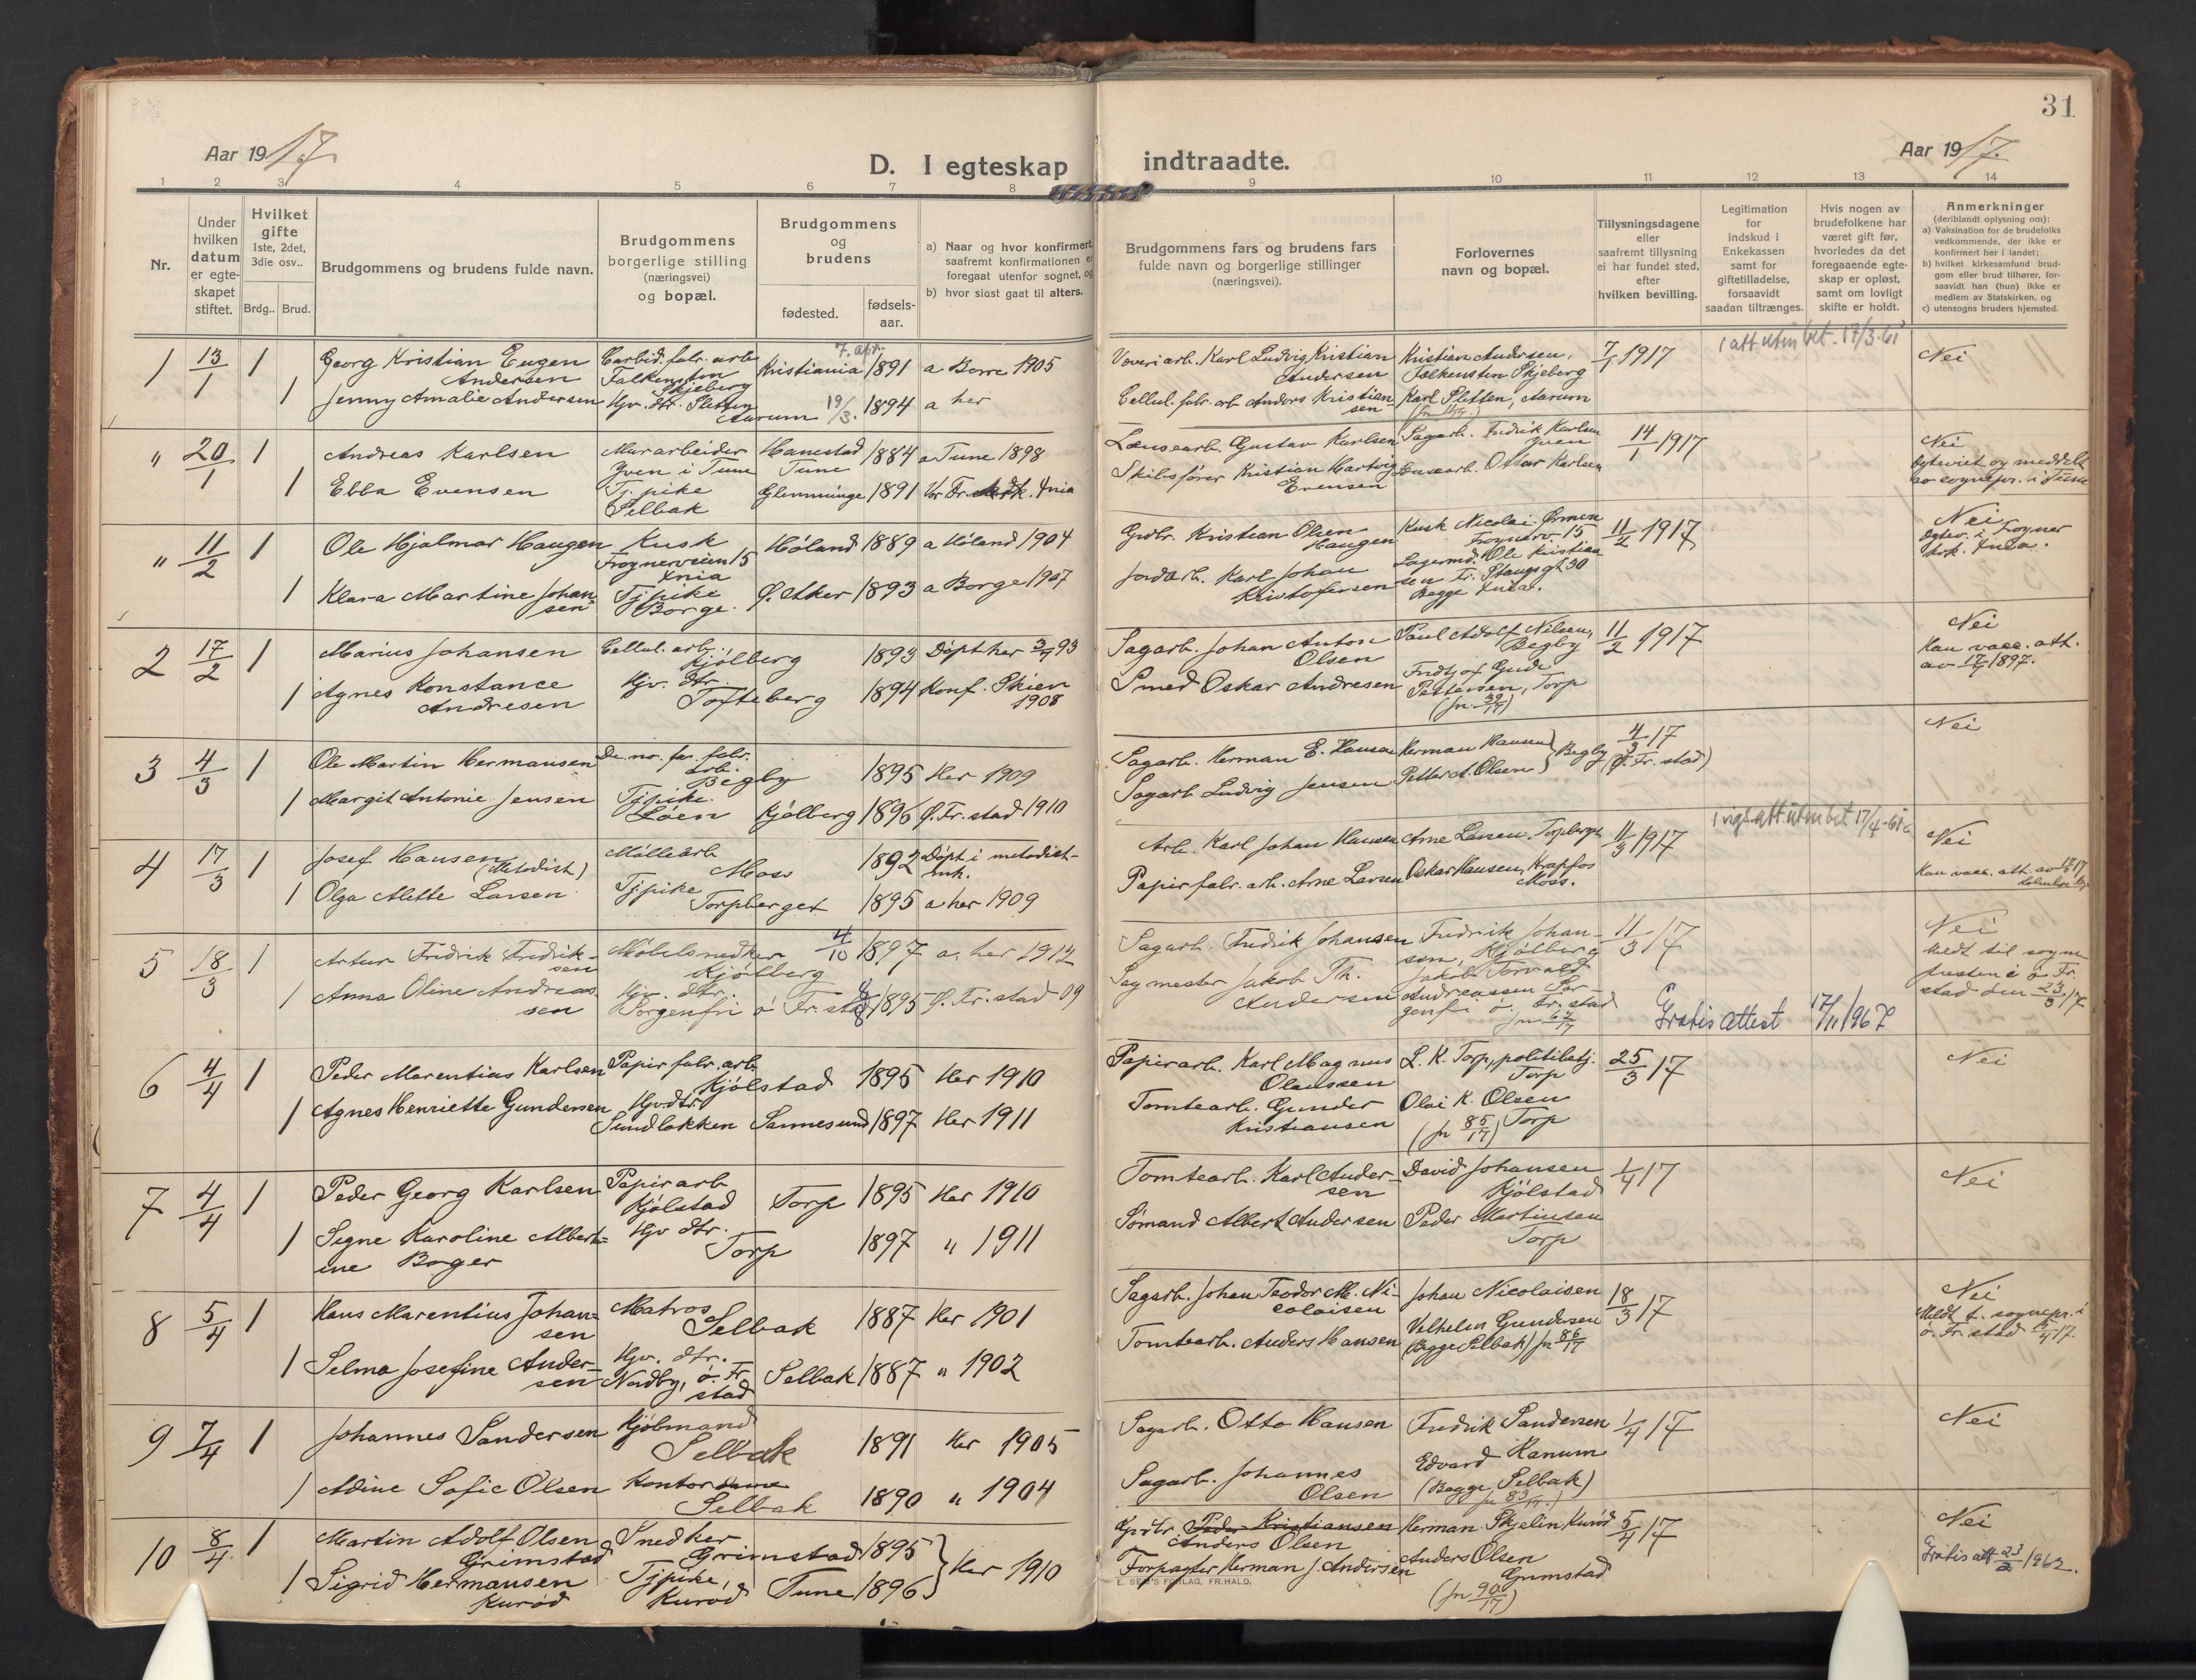 31
Aar 1917
D. I egteskap indtraadte.
Aar 1917.
1 2 3 4 5 6 7 8 9 10 11 12 13 14
Nr.
Under
hvilken
datum
er egte-
skapet
stiftet.
Hvilket
gifte
1ste, 2det,
3die osv..
Brdg..
Brud.
Brudgommens og brudens fulde navn.
Brudgommens
borgerlige stilling
(næringsvei)
og bopæl.
Brudgommens
og
brudens
fødested.
fødsels-
aar.
a) Naar og hvor konfirmert,
saafremt konfirmationen er
foregaat utenfor sognet, og
b) hvor sidst gaat til alters.
Brudgommens fars og brudens fars
fulde navn og borgerlige stillinger
(næringsvei).
Forlovernes
navn og bopæl.
Tillysningsdagene
eller
saafremt tillysning
ei har fundet sted,
efter
hvilken bevilling.
Legitimation
for
indskud i
Enkekassen
samt for
giftetilladelse,
forsaavidt
saadan tiltrænges.
Hvis nogen av
brudefolkene har
været gift før,
hvorledes da det
foregaaende egte-
skap er opløst,
samt om lovligt
skifte er holdt.
Anmerkninger
(deriblandt oplysning om):
a) Vaksination for de brudefolks
vedkommende, der ikke er
konfirmert her i landet;
b) hvilket kirkesamfund brud-
gom eller brud tilhører, for-
saavidt han (hun) ikke er
medlem av Statskirken, og
c) utensogns bruders hjemsted.
1 13/1 1 Georg Kristian Eugen
Andersen
Carbid. fabr. arb
Falkensten
Skjeberg
Kristiania 7. apr. 1891 a Borre 1905
1 Jenny Amalie Andersen
Hjv. dtr. Sletten
Aarum 19/3. 1894 a her
arb. Karl Ludvig Kristian
Andersen
Cellul. fabr. arb Anders Kristian-
sen
Kristian Andersen,
Falkensten Skjeberg
Karl Sletten, Aarum
7/1 1917
1 att utm bet. 17/3-61
Nei
" 20/1 1 Andreas Karlsen
Murarbeider
Yven i Tune
Hanestad
Tune
1884 a Tune 1898
1 Ebba Evensen
Tj. pike
Selbak
Glemminge 1891 Vor Fr. k. Xnia
Lænsearb. Gustav Karlsen
Skibsfører Kristian Hartvig
Evensen
Sagarb. Fredrik Karlsen
Yven
Lænsearb. Ottar Karlsen
14/1 1917
Nei
Egteviet og meddelt
av sognepr. i Tune
" 11/2 1 Ole Hjalmar Haugen
Kusk
Frognerveien 15
Xnia
Høland 1889 a Høland 1904
1 Klara Martine Johan-
sen
Tjpike
Borge.
Ø. Aker 1893 a Borge 1907
Grdbr. Kristian Olsen
Haugen
Jordarb. Karl Johan
Kristofersen
Kusk Nicolai Ørmen
Frognerv. 15
Lagermd. Ole Kristian-
sen Fr. Stangsgt 30
Begge Xnia.
11/2 1917
Nei
Egtev. i Frogner
krk. Xnia.
2 17/2 1 Marius Johansen
Cellul. arb.
Kjølberg
1893 Døpt her 3/4 93
1 Agnes Konstance
Andresen
Hjv. dtr.
Tofteberg
1894 Konf. Skien
1908
Sagarb. Johan Anton
Olsen
Smed Oskar Andresen
Paul Adolf Nilsen,
Begby
Fridtjof Gude
Pettersen, Torp
(fn 39/17)
11/2 1917
Nei
Hau vacc. att.
av 17/7 1897.
3 4/3 1 Ole Martin Hermansen
De no. fa. fabr.
arb.
Begby
1895 Her 1909
1 Margit Antonie Jensen
Tjpike.
Løen
Kjølberg 1896 Ø. Fr. stad 1910
Sagarb. Herman E. Hansen
Sagarb Ludvig Jensen
Herman Hansen
Petter A. Olsen } Begby
4/3 17
(Ø. Fr. stad)
Nei
4 17/3 1 Josef Hansen
(Metodist)
Møllearb
Moss
1892 Døpt i metodist-
mk.
1 Olga Alette Larsen
Tjpike
Torpberget
1895 a her 1909
Arb. Karl Johan Hansen
Papirfabr. arb. Arne Larsen
Arne Larsen. Torpberget
Oskar Hansen, Krapfos
Moss.
11/3 1917
1 vigs att utm bet 17/4-61
Nei
5 18/3 1 Artur Fredrik Fredrik-
sen
Møbelsnedker
Kjølberg
4/10 1897 a. her 1912
1 Anna Oline Andreas-
sen
Hjv. dtr.
Sorgenfri ø Fr. stad 8/8 1895 Ø. Fr. stad 09
Sagarb. Fredrik Johansen
Sagmester Jakob Th.
Andersen
Fredrik Johan-
sen, Kjølberg
Jakob Torvald
Andreassen Sor-
genfri ø. Fr. stad
fn 67/17
11/3 17
Gratis attest 17/11 1967
Nei
Meldt til sogne-
presten i ø. Fr.
stad den 23/3 17
6 4/4 1 Peder Marentius Karlsen
Papir fabr. arb
Kjølstad 1895 Her 1910
1 Agnes Henriette Gundersen
Hjvdtr.
Sundløkken Sannesund 1897 Her 1911
Papirarb. Karl Magnus
Olaussen
Tomtearb. Gunder
Kristiansen
L. K. Torp, politibetj.
Torp
Olai K. Olsen
(fn 85/17) Torp
25/3 17
Nei
7 4/4 1 Peder Georg Karlsen
Papirarb
Kjølstad
Torp 1895 Her 1910
1 Signe Karoline Albert-
ine Boger
Hjv dtr.
Torp 1897 " 1911
Tomtearb. Karl Ander-
sen
Sømand Albert Andersen
David Johansen
Kjølstad
Peder Martinsen
Torp
1/4 17
Nei
8 5/4 1 Hans Marentius Johan-
sen
Matros
Selbak 1887 Her 1901
1 Selma Josefine Ander-
sen
Hjv. dtr.
Nordby, ø. Fr.
stad
Selbak 1887 " 1902
Sagarb. Johan Teodor M. Ni-
colaisen
Tomtearb. Anders Hansen
Johan Nicolaisen
Velhelm Gundersen
(Begge Selbak) fn 86/17
18/3 17
Nei
Meldt t. sognepr. i
ø. Fr. stad 15/4 17.
9 7/4 1 Johannes Sandersen
Kjøbmand
Selbak 1891 Her 1905
1 Adine Sofie Olsen
Kontordame
Selbak 1890 " 1904
Sagarb. Otto Hansen
Sagarb. Johannes
Olsen
Fredrik Sandersen
Edvard Ranum
(Begge Selbak)
fn 83/17.)
1/4 17
Nei
10 8/4. 1 Martin Adolf Olsen
Grimstad
Snedker
Grimstad 1895
1 Sigrid Hermansen
Kurød
Tjpike,
Kurød
Tune 1896 } Her 1910
Grdbr. Peder Kristiansen
Anders Olsen
Forpagter Herman J. Andersen
Herman Skjelin Kurød
Anders Olsen
Grimstad
(fn 90/17)
5/4 17
Nei
Gratis att 23/2 1962.
E. SEM'S FORLAG, FR.HALD.